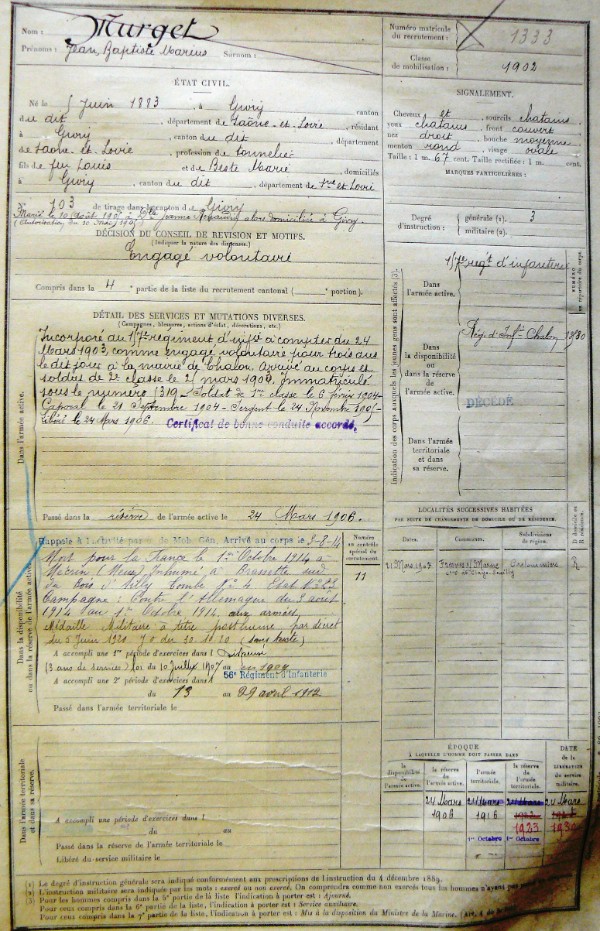 Nom : Murget
Prénoms : Jean Baptiste Marius Surnom :
Numéro matricule du recrutement : 1333
Classe de mobilisation : 1902
ÉTAT CIVIL.
Né le 5 Juin 1883, à Givry, canton
du dit, département de Saône-et-Loire, résidant
à Givry, canton du dit, département
de Saône et Loire, profession de tonnelier
fils de feu Louis et de Beste Marie, domiciliés
à Givry, canton du dit, département de Sne et Loire
N° 103 de tirage dans le canton de Givry
DÉCISION DU CONSEIL DE REVISION ET MOTIFS.
(Indiquer la nature des dispenses.)
Engagé volontaire
Compris dans la 4e partie de la liste du recrutement cantonal ( portion).
SIGNALEMENT.
Cheveux et sourcils chatains
yeux chatains, front couvert
nez droit, bouche moyenne
menton rond, visage ovale
Taille : 1 m. 67 cent. Taille rectifiée : 1 m. cent.
MARQUES PARTICULIÈRES :
Degré d'instruction : générale (1). 3
militaire (2).
DÉTAIL DES SERVICES ET MUTATIONS DIVERSES.
(Campagnes, blessures, actions d'éclat, décorations, etc.)
Dans l'armée active.
Incorporé au régiment d'infie à compter du 24
Mars 1903, comme engagé volontaire pour trois ans
le dit jour à la mairie de Chalon. Arrivé au corps et
soldat de 2e classe le mars 1903. Immatriculé
sous le numéro 1319. Soldat de 1re classe le 6 1904
Caporal le 21 Septembre 1904 - Sergent le 24 Novembre 1905
Libéré le 24 Mars 1906. Certificat de bonne conduite accordé.
Passé dans la réserve de l'armée active le 24 Mars 1906.
Dans la disponibilité ou dans la réserve de l'armée active.
Rappelé à l'activité par de Mob. Gén. Arrivé au corps le 3-8-14
Mort pour la France le 1er Octobre 1914 à
Mécrin (Meuse) inhumé à Brassette au
bois d'Ailly tombe N° 4
Campagne : Contre l'Allemagne du 3 août
1914 au 1er Octobre 1914, aux armées,
Médaille Militaire à titre posthume par décret
du 5 Juin 1920 J.O. du 30.11.20
A accompli une 1re période d'exercices dans l
(3 ans de services) Loi du 10 Juillet 1907
A accompli une 2e période d'exercices dans l 56e Régiment d'Infanterie
du 13 au 29 avril 1912
Passé dans l'armée territoriale le
Numéro au contrôle spécial du recrutement.
11
Indication des corps auxquels les jeunes gens sont affectés (3).
Dans l'armée active.
regt d'infanterie
Dans la disponibilité ou dans la réserve de l'armée active.
Rég. d'Infie Chalon
DÉCÉDÉ
Dans l'armée territoriale et dans sa réserve.
LOCALITÉS SUCCESSIVES HABITÉES
PAR SUITE DE CHANGEMENTS DE DOMICILE OU DE RÉSIDENCE.
Dates. Communes. Subdivisions de région. D domicile ou R résidence.
Dans l'armée territoriale et dans sa réserve.
A accompli une période d'exercices dans l
du au
Passé dans la réserve de l'armée territoriale le
Libéré du service militaire le
ÉPOQUE
À LAQUELLE L'HOMME DOIT PASSER DANS
DATE DE LA LIBÉRATION du service militaire.
la disponibilité de l'armée active. la réserve de l'armée active. l'armée territoriale. la réserve de l'armée territoriale.
24 Mars 24 Mars 24 Mars 24 Mars
1906 1916
1923 1930
1er Octobre 1er Octobre
(1) Le degré d'instruction générale sera indiqué conformément aux prescriptions de l'instruction du 4 décembre 1889.
(2) L'instruction militaire sera indiquée par les mots : exercé ou non exercé. On comprendra comme non exercés tous les hommes n'ayant pas
(3) Pour les hommes compris dans la 5e partie de la liste, l'indication à porter est : Ajourné.
Pour ceux compris dans la 6e partie de la liste, l'indication à porter est : Service auxiliaire.
Pour ceux compris dans la 7e partie de la liste, l'indication à porter est : Mis à la disposition du Ministre de la Marine.